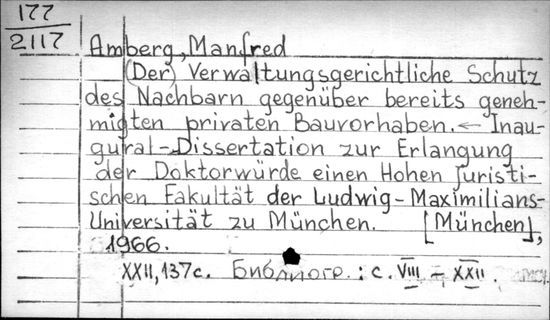 177
2117
Amberg, Manfred
(Der) Verwaltungsgerichtliche Schutz
des Nachbarn gegenüber bereits geneh-
migten privaten Bauvorhaben. ← Inau-
gural-Dissertation zur Erlangung
der Doktorwürde einen Hohen Juristi-
schen Fakultät der Ludwig-Maximilians-
Universität zu München. [München],
1966.
XXII, 137 с. Библиогр.: с. VIII – XXII.